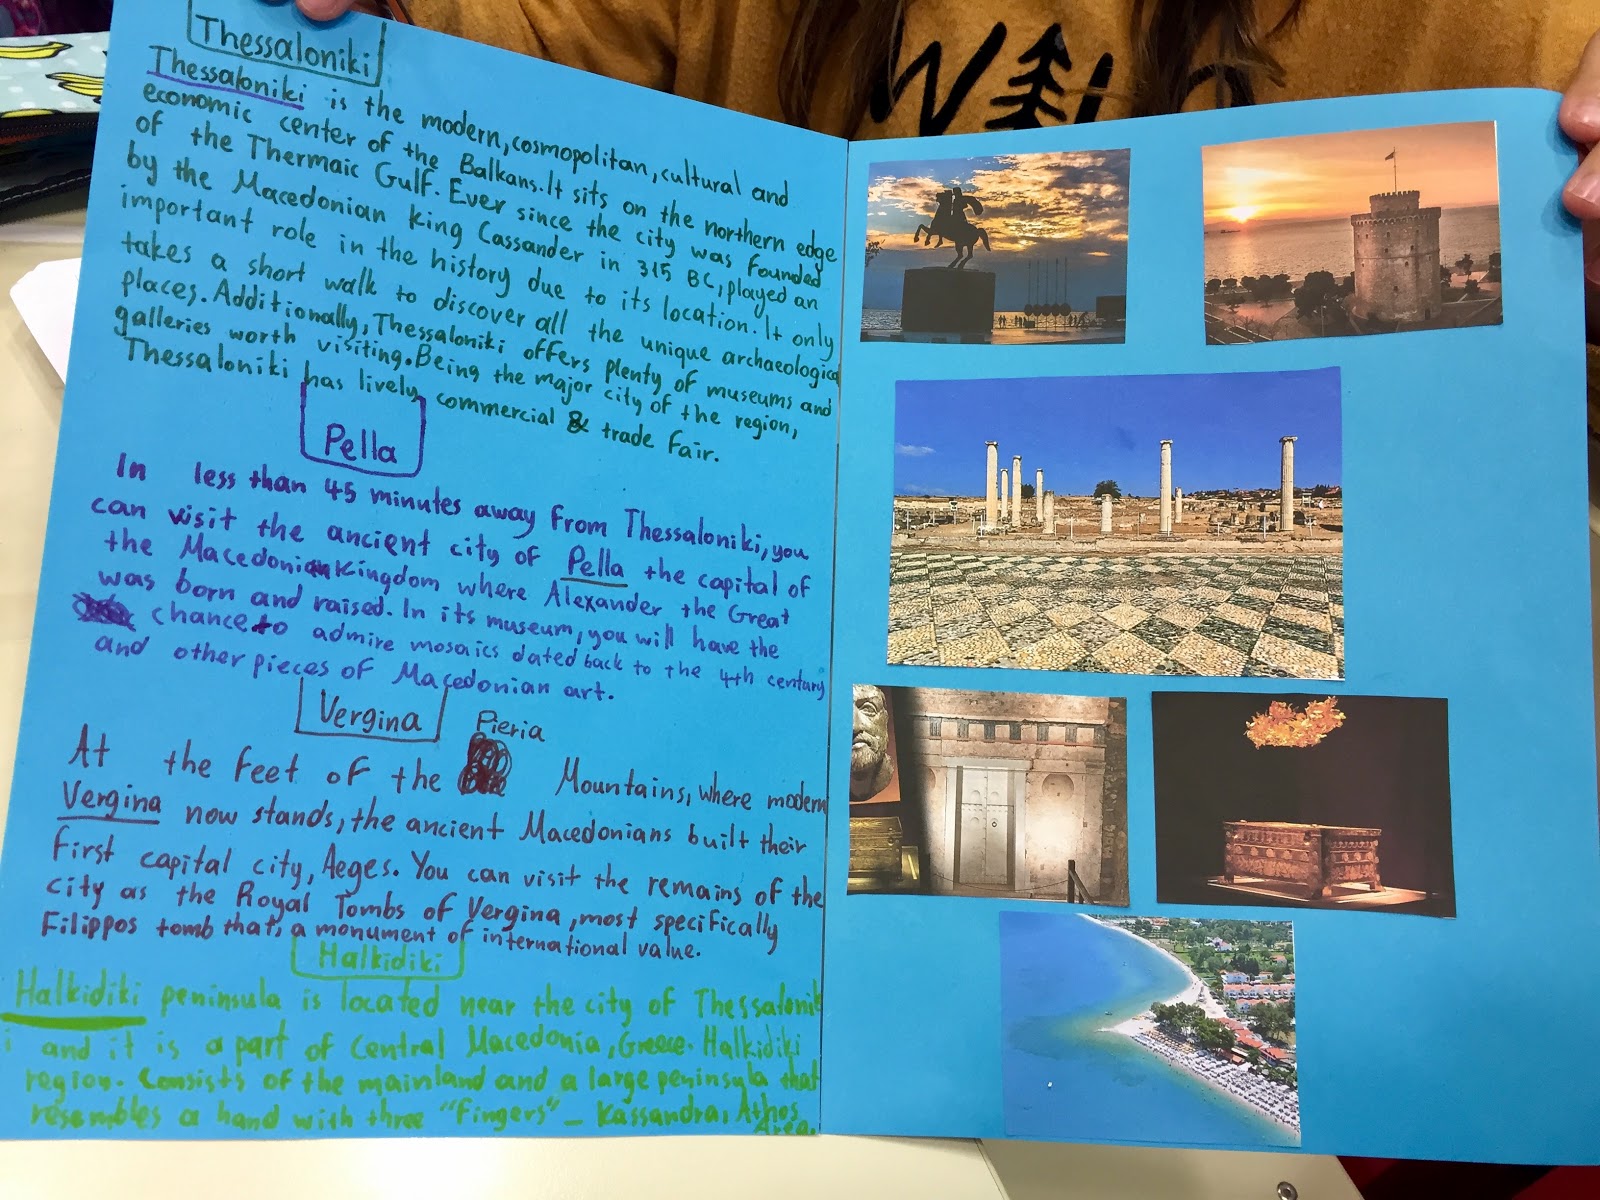 WILD
Thessaloniki
Thessaloniki is the modern, cosmopolitan, cultural and
economic center of the Balkans. It sits on the northern edge
of the Thermaic Gulf. Ever since the city was founded
by the Macedonian king Cassander in 315 BC, played an
important role in the history due to its location. It only
takes a short walk to discover all the unique archaeological
places. Additionally, Thessaloniki offers plenty of museums and
galleries worth visiting. Being the major city of the region,
Thessaloniki has lively commercial & trade fair.
Pella
In less than 45 minutes away from Thessaloniki, you
can visit the ancient city of Pella the capital of
the Macedonian Kingdom where Alexander the Great
was born and raised. In its museum, you will have the
chance to admire mosaics dated back to the 4th century
and other pieces of Macedonian art.
Vergina
Pieria
At the feet of the Mountains, where modern
Vergina now stands, the ancient Macedonians built their
first capital city, Aeges. You can visit the remains of the
city as the Royal Tombs of Vergina, most specifically
Filippos tomb that, a monument of international value.
Halkidiki
Halkidiki peninsula is located near the city of Thessalonik
i and it is a part of Central Macedonia, Greece. Halkidiki
region. Consists of the mainland and a large peninsula that
resembles a hand with three "fingers" – Kassandra, Athos
Area.